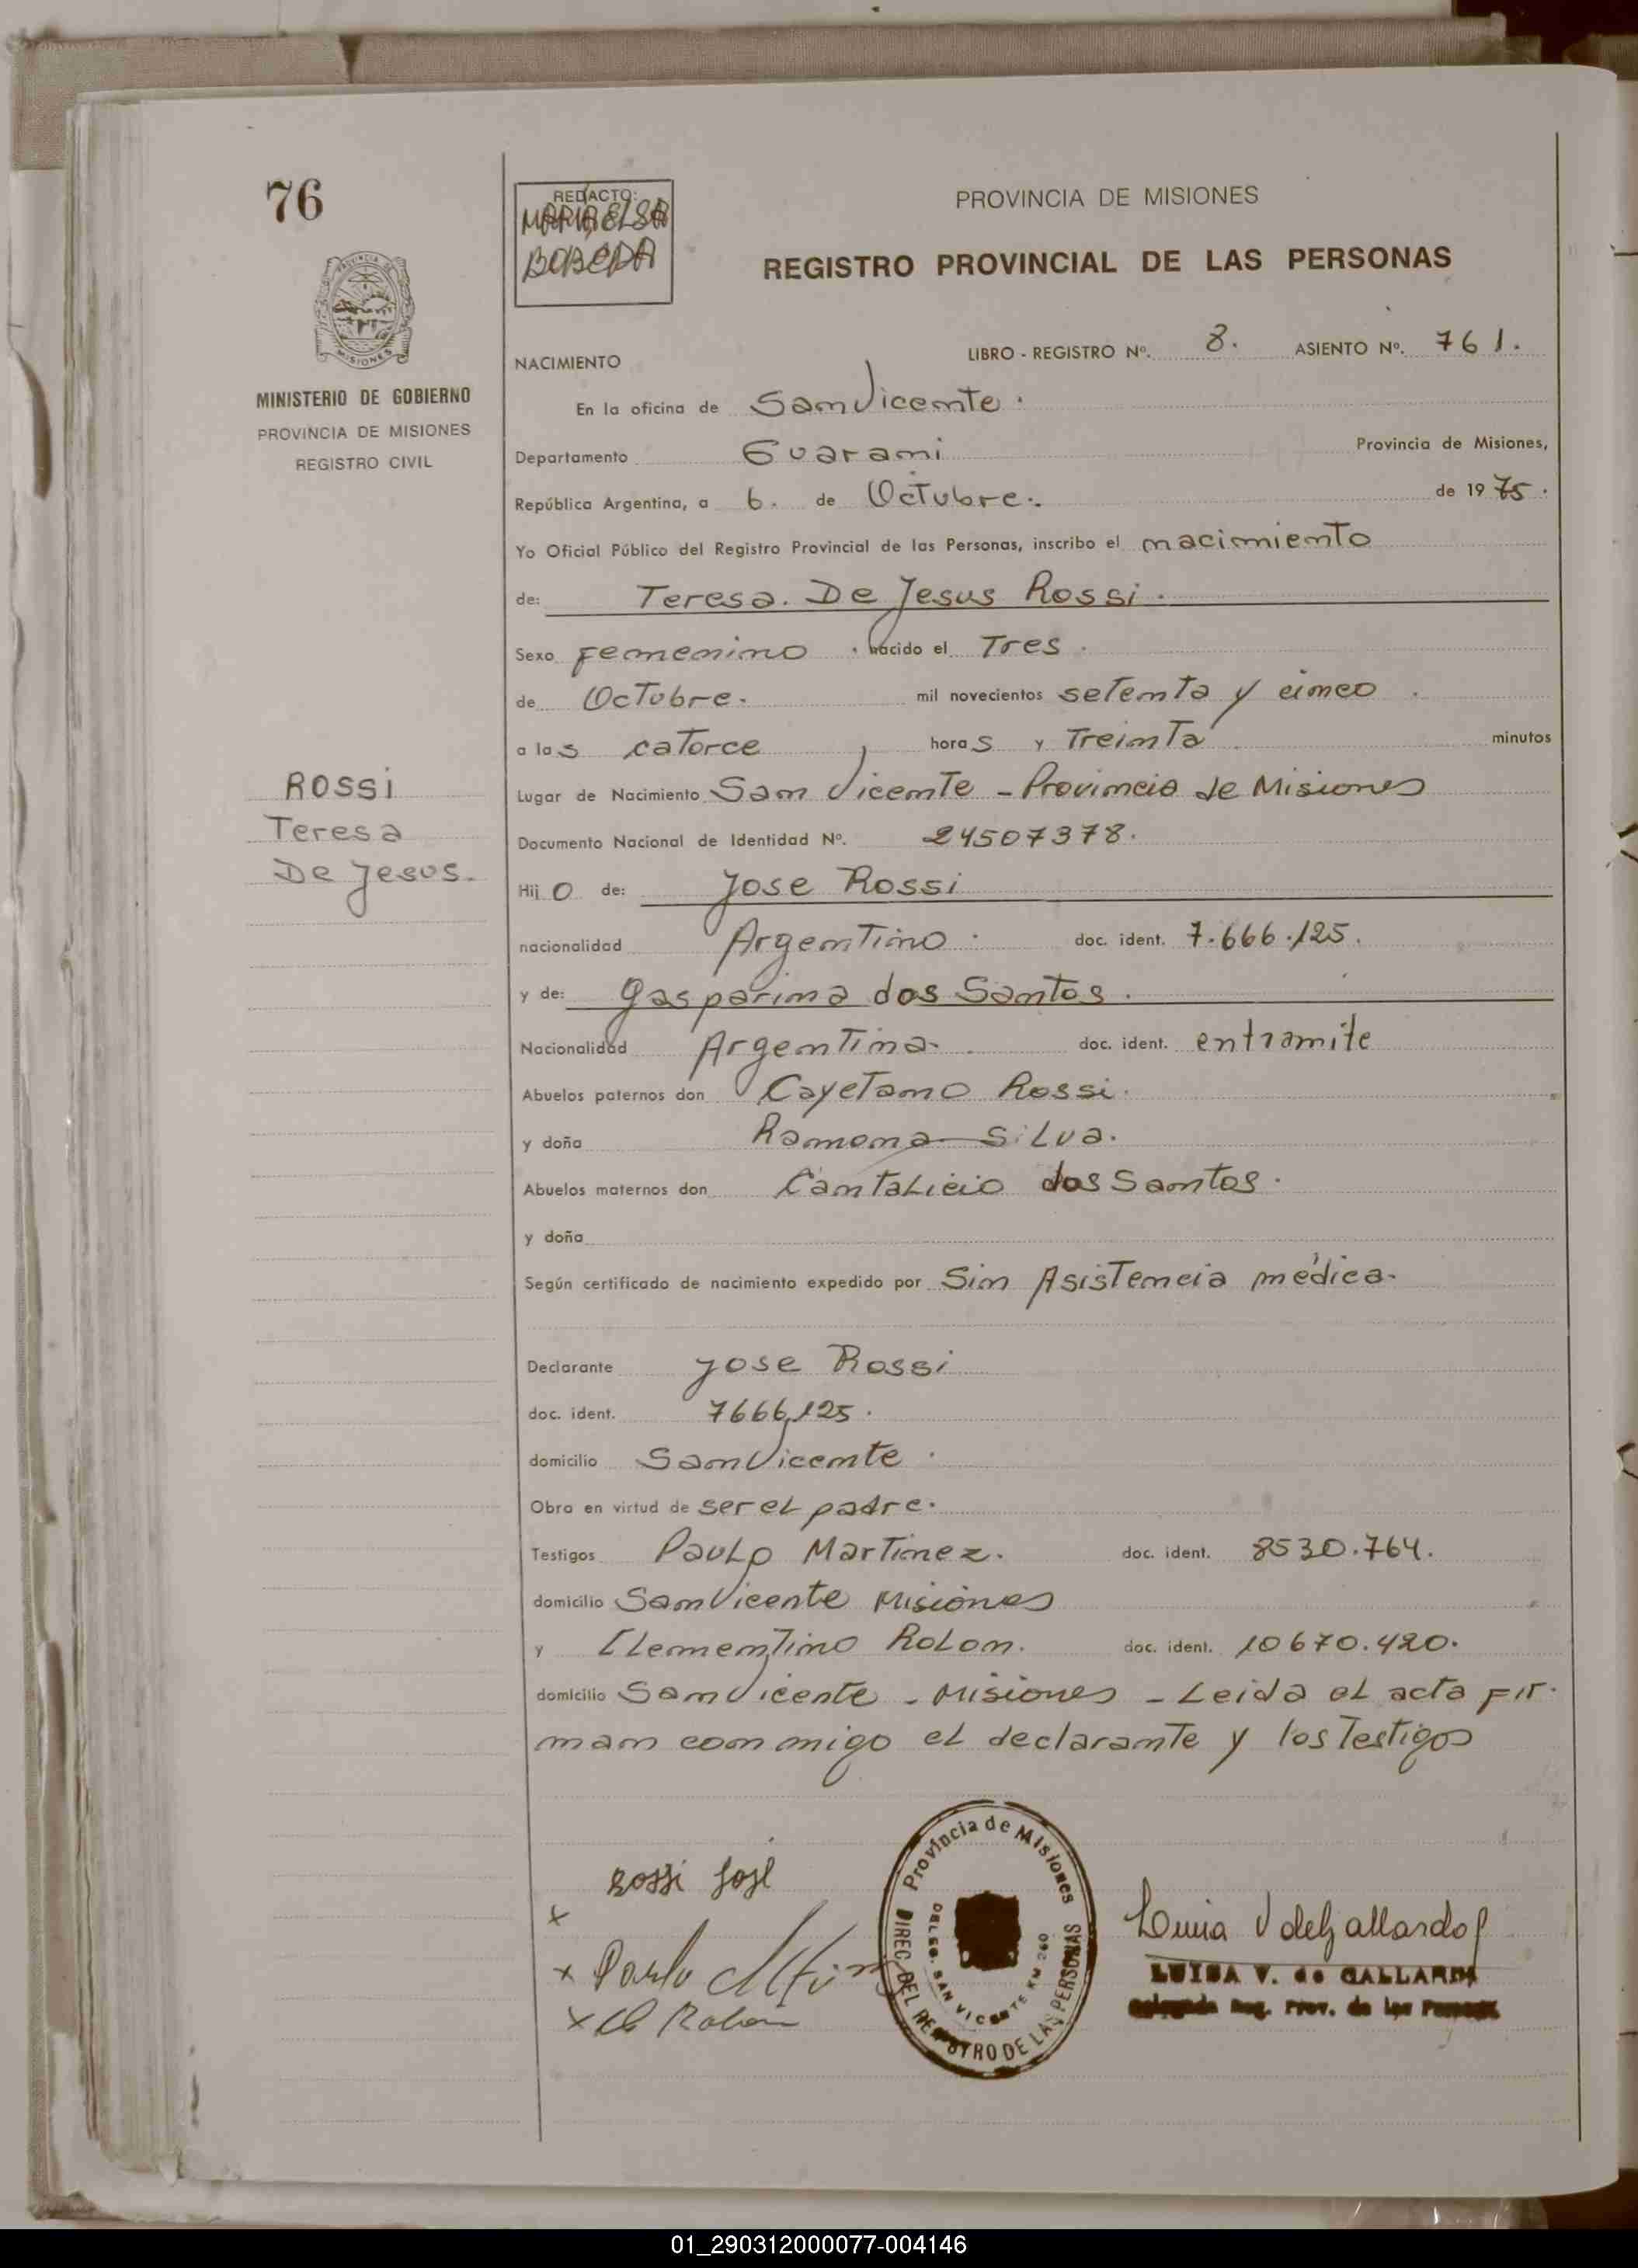 76
REDACTO:
MARIA ELSA
BOBEDA
PROVINCIA DE MISIONES
REGISTRO PROVINCIAL DE LAS PERSONAS
PROVINCIA DE
MISIONES
MINISTERIO DE GOBIERNO
PROVINCIA DE MISIONES
REGISTRO CIVIL
NACIMIENTO LIBRO - REGISTRO Nº. 8. ASIENTO Nº. 761.
En la oficina de San Vicente.
Departamento Guarani Provincia de Misiones,
República Argentina, a 6. de Octubre. de 1975.
Yo Oficial Público del Registro Provincial de las Personas, inscribo el nacimiento
de: Teresa. De Jesus Rossi.
Sexo femenino. nacido el Tres.
de Octubre. mil novecientos setenta y cinco.
a las catorce horas y Treinta minutos
Rossi
Teresa
De Jesus.
Lugar de Nacimiento San Vicente - Provincia de Misiones
Documento Nacional de Identidad Nº. 24507378.
Hijo de: Jose Rossi
nacionalidad Argentino. doc. ident. 7.666.125.
y de: Gasparina dos Santos.
Nacionalidad Argentina. doc. ident. entramite
Abuelos paternos don Cayetano Rossi.
y doña Ramona Silva.
Abuelos maternos don Cantalicio dos Santos.
y doña
Según certificado de nacimiento expedido por Sin Asistencia médica.
Declarante Jose Rossi
doc. ident. 7666,125.
domicilio San Vicente.
Obra en virtud de ser el padre.
Testigos Paulo Martinez. doc. ident. 8530.764.
domicilio San Vicente Misiones
y Clementino Rolon. doc. ident. 10670.420.
domicilio San Vicente - Misiones - Leida el acta fir-
man conmigo el declarante y los Testigos
Rossi José
x
x Paulo
x Cl Rolon
Provincia de Misiones
DIREC. DEL REGISTRO DE LAS PERSONAS
DELEG. SAN VICENTE KM 260
Luisa V de Gallardo
LUISA V. de GALLARDO
Delegada Reg. Prov. de las Personas
01_290312000077-004146